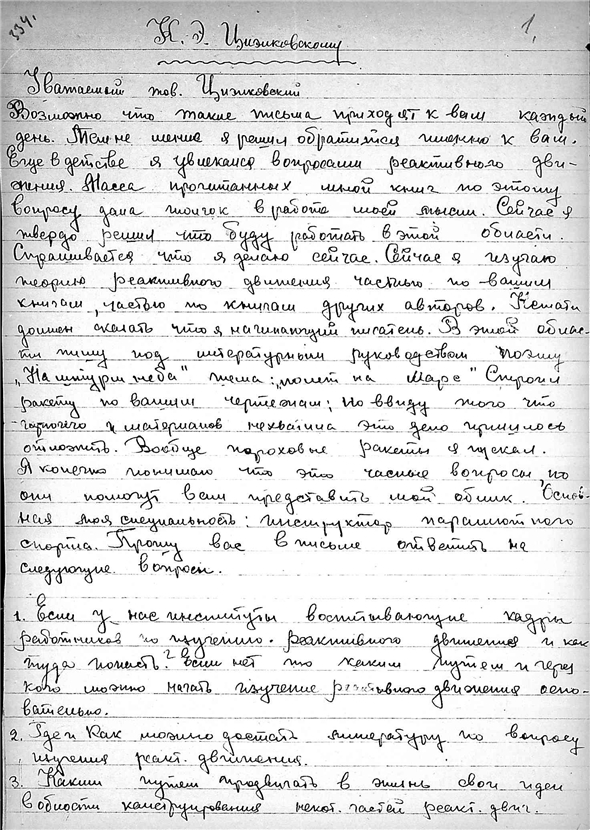 334.
1.
К. Э. Циэлковскому
Уватаемый тов. Циэлковский
Возможно что такие письма приходят к вам каждый
день. Тем не менее я решил обратится именно к вам.
Еще в детстве я увлекался вопросами реактивного дви-
жения. Масса прочитанных мной книг по этому
вопросу дала толчок в работе моей мысли. Сейчас я
твердо решил что буду работать в этой области.
Спрашивается что я делаю сейчас. Сейчас я изучаю
теорию реактивного движения частью по вашим
книгам, частью по книгам других авторов. Кстати
должен сказать что я начинающий писатель. В этой облас-
ти пишу под литературным руководством поэму
„На штурм неба" тема: „полет на Марс" Строил
ракету по вашим чертежам; но ввиду того что
горючего и материалов нехватило это дело пришлось
отложить. Вообще пороховые ракеты я пускал.
Я конечно понимаю что это частные вопросы, но
они помогут вам представить мой облик. Основ-
ная моя специальность: инструктор парашютного
спорта. Прошу вас в письме ответить на
следующие вопросы.
1. Если у нас институты воспитывающие кадры
работников по изучению реактивного движения и как
туда попасть? Если нет то каким путем и через
кого можно начать изучение реактивного движения осно-
вательно.
2. Где и как можно достать литературу по вопросу
изучения реакт. движения.
3. Каким путем продвигать в жизнь свои идеи
в области конструирования некот. частей реакт. двиг.